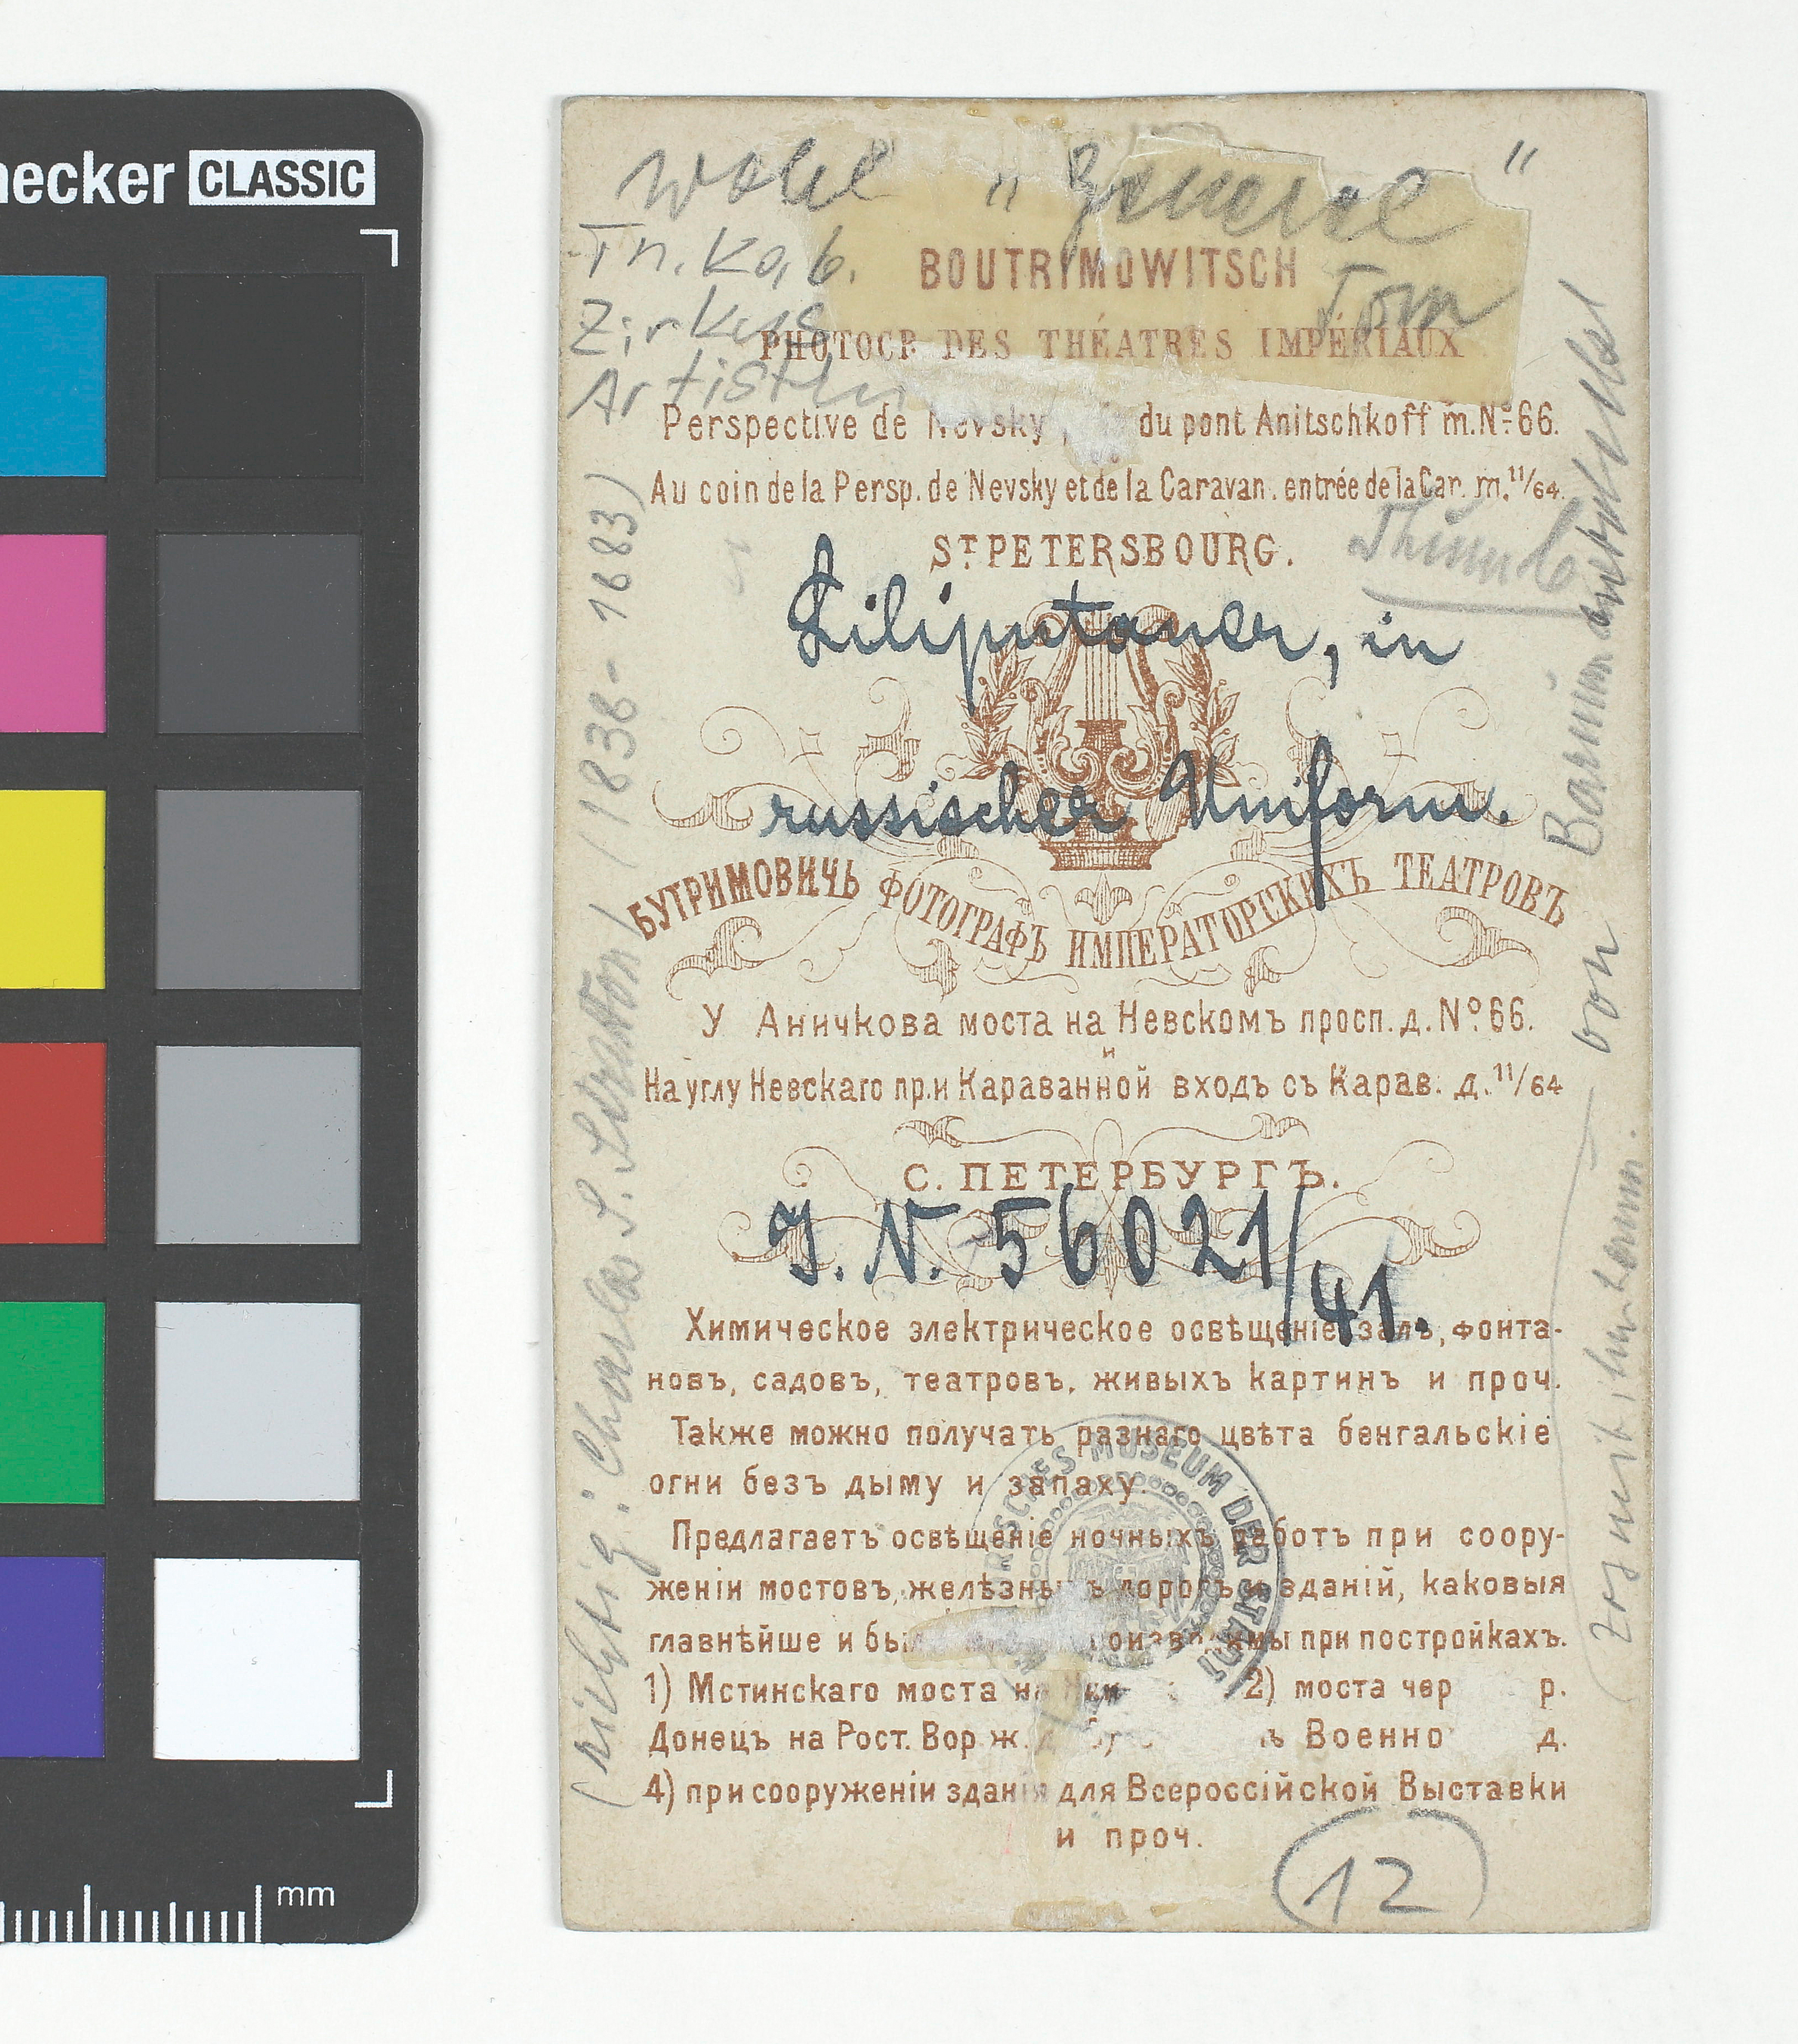 necker CLASSIC
wohl "General"
Tn. Kab.
BOUTRIMOWITSCH
Tom
Zirkus
PHOTOGR DES THÉATRES IMPÉRIAUX
Artisten
Perspective de Nevsky du pont Anitschkoff m. Nº 66.
Au coin de la Persp. de Nevsky et de la Caravan. entrée de la Car. m. 11/64.
Thumb
ST. PETERSBOURG.
Liliputaner, in
russischer Uniform.
БУТРИМОВИЧЬ ФОТОГРАФЪ ИМПЕРАТОРСКИХЪ ТЕАТРОВЪ
У Аничкова моста на Невскомъ просп. д. Nº 66.
и
На углу Невскаго пр. и Караванной входъ съ Карав. д. 11/64
С. ПЕТЕРБУРГЪ.
J. N. 56021/41.
Химическое электрическое освѣщеніе залъ, фонта-
новъ, садовъ, театровъ, живыхъ картинъ и проч.
Также можно получать разнаго цвѣта бенгальскіе
огни безъ дыму и запаху.
Предлагаетъ освѣщеніе ночныхъ работъ при соору-
женіи мостовъ, желѣзныхъ дорогъ и зданій, каковыя
главнѣйше и был производимы при постройкахъ.
1) Мстинскаго моста на Ник 2) моста чер р.
Донецъ на Рост. Вор ж. д Военно д.
4) при сооруженіи зданія для Всероссійской Выставки
и проч.
12
(richtig: Charles S. Stratton) (1838-1883)
von Barnum
HISTORISCHES MUSEUM DER STADT
mm